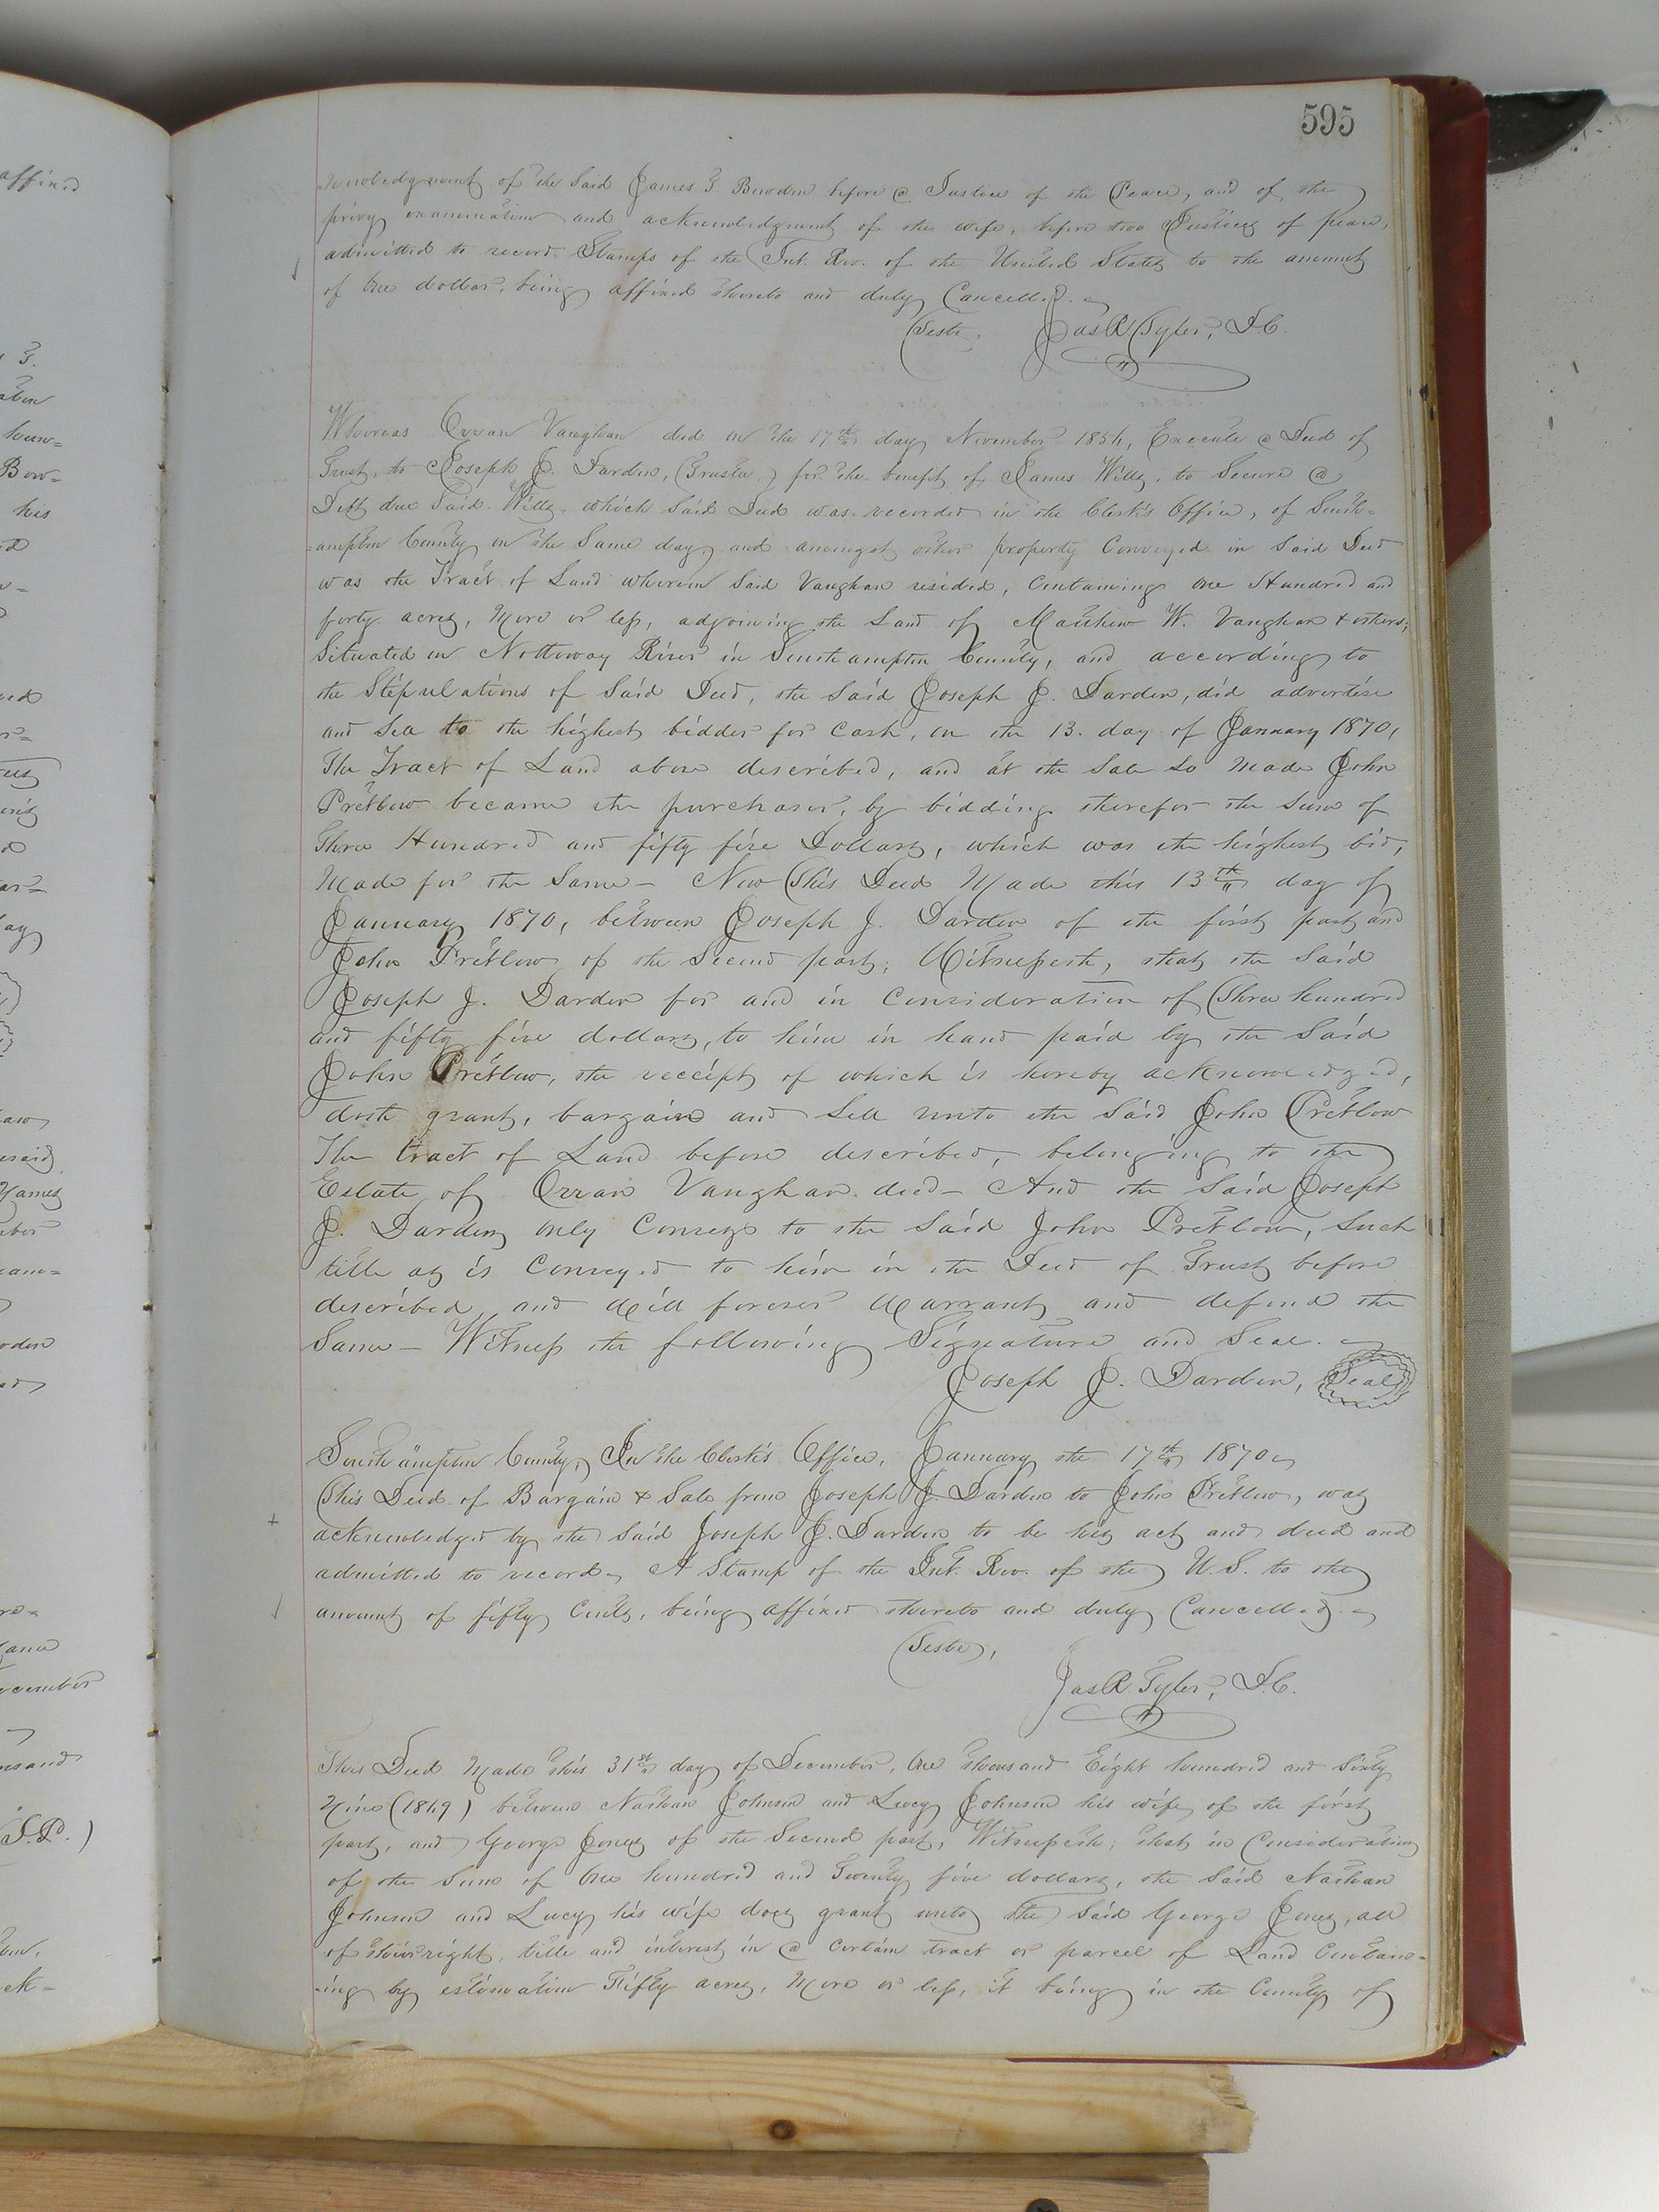 595
knowledgment of the said James T. Bowden before a Justice of the Peace, and of the
privy examination and acknowledgment of the wife, before two Justices of peace,
admitted to record. Stamps of the Int. Rev. of the United States to the amount
of One dollar, being affixed thereto and duly Cancelled.
Teste, Jas R Tyler, D.C.
Whereas Orran Vaughan did on the 17th day November 1854, Execute a Deed of
Trust, to Joseph J. Darden, (Trustee) for the benefit of James Wills, to Secure a
Debt due Said Wills, which Said Deed was recorded in the Clerk's Office, of South=
=ampton County on the Same day, and amongst other property Conveyed in Said Deed
was the Tract of Land whereon Said Vaughan resided, Containing One Hundred and
forty acres, More or less, adjoining the Land of Matthew W. Vaughan & others,
Situated on Nottoway River in Southampton County, and according to
the Stipulations of Said Deed, the Said Joseph J. Darden, did advertise
and Sell to the highest bidder for Cash, on the 13. day of January 1870,
The Tract of Land above described, and at the Sale So Made John
Pretlow became the purchaser, by bidding therefor the Sum of
Three Hundred and fifty five Dollars, which was the highest bid,
Made for the Same - Now This Deed Made this 13th day of
January 1870, between Joseph J. Darden of the first part and
John Pretlow of the Second part; Witnesseth, that the Said
Joseph J. Darden for and in Consideration of Three hundred
and fifty five dollars, to him in hand paid by the Said
John Pretlow, the receipt of which is hereby acknowledged,
doth grant, bargain and Sell unto the Said John Pretlow
The tract of Land before described, belonging to the
Estate of Orran Vaughan decd - And the Said Joseph
J. Darden only Conveys to the Said John Pretlow, Such
title as is Conveyed to him in the Deed of Trust before
described, and Will forever Warrant and defend the
Same - Witness the following Signature and Seal.
Joseph J. Darden, Seal
Southampton County, In the Clerk's Office, January the 17th 1870
This Deed of Bargain & Sale from Joseph J. Darden to John Pretlow, was
acknowledged by the Said Joseph J. Darden to be his act and deed and
admitted to record, A Stamp of the Int. Rev. of the U.S. to the
amount of fifty Cents, being affixed thereto and duly Cancelled.
Teste,
Jas R Tyler, D.C.
This Deed Made this 31st day of December, One thousand Eight hundred and Sixty
Nine (1869) between Nathan Johnson and Lucy Johnson his wife of the first
part, and George Jones of the Second part, Witnesseth; that in Consideration
of the Sum of One hundred and Twenty five dollars, the Said Nathan
Johnson and Lucy his wife does grant unto the Said George Jones, all
of their right, title and interest in a Certain tract or parcel of Land Contain=
=ing by estimation Fifty acres, More or less, it being in the County of